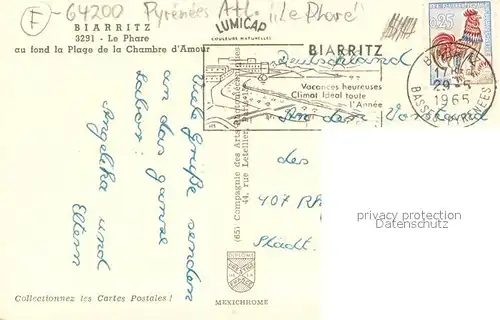 F-64200 Pyrénées Atl. "Le Phare"
BIARRITZ
3291 - Le Phare
au fond la Plage de la Chambre d'Amour
LUMICAP
COULEURS NATURELLES
BIARRITZ
Vacances heureuses
Climat Idéal toute
l'Année
25
17H
29-5
1965
BASSES PYRÉNÉES
Deutschland
An den Vorstand
des
407 Rh
Städt.
Viele Grüße senden
an das ganze
Labor:
Angelika und
Eltern
(65) Compagnie des Arts
44, rue Letellier,
privacy protection
Datenschutz
DIPLOME
MEXICHROME
Collectionnez les Cartes Postales !